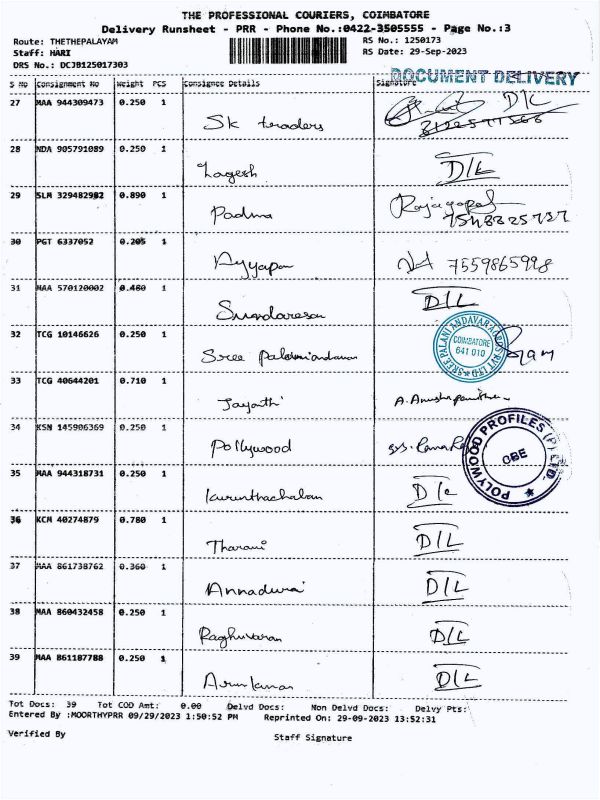 THE PROFESSIONAL COURIERS, COIMBATORE
Delivery Runsheet - PRR - Phone No.:0422-3505555 - Page No.:3
Route: THETHEPALAYAM RS No.: 1250173
Staff: HARI RS Date: 29-Sep-2023
DRS No.: DCJB125017303
DOCUMENT DELIVERY
S No Consignment No Weight PCS Consignee Details Signature
27 MAA 944309473 0.250 1 Sk traders D/L
28 NDA 905791089 0.250 1 Logesh D/L
29 SLM 329482982 0.890 1 Padma Rajagopal
30 PGT 6337052 0.205 1 Ayyapa 7559865998
31 MAA 570120002 0.480 1 Sundaresan D/L
32 TCG 10146626 0.250 1 Sree
SREE PALANI ANDAVAR AGROS PVT LTD
COIMBATORE
641 010
33 TCG 40644201 0.710 1 Jayanthi
34 KSN 145906369 0.250 1 Pollywood
POLYWOOD PROFILES (P) LTD.
CBE
35 MAA 944318731 0.250 1 D/L
36 KCM 40274879 0.780 1 Tharani D/L
37 MAA 861738762 0.360 1 Annadurai D/L
38 MAA 860432458 0.250 1 Raghuvaran D/L
39 MAA 861187788 0.250 1 Arunkumar D/L
Tot Docs: 39 Tot COD Amt: 0.00 Delvd Docs: Non Delvd Docs: Delvy Pts:
Entered By :MOORTHYPRR 09/29/2023 1:50:52 PM Reprinted On: 29-09-2023 13:52:31
Verified By Staff Signature